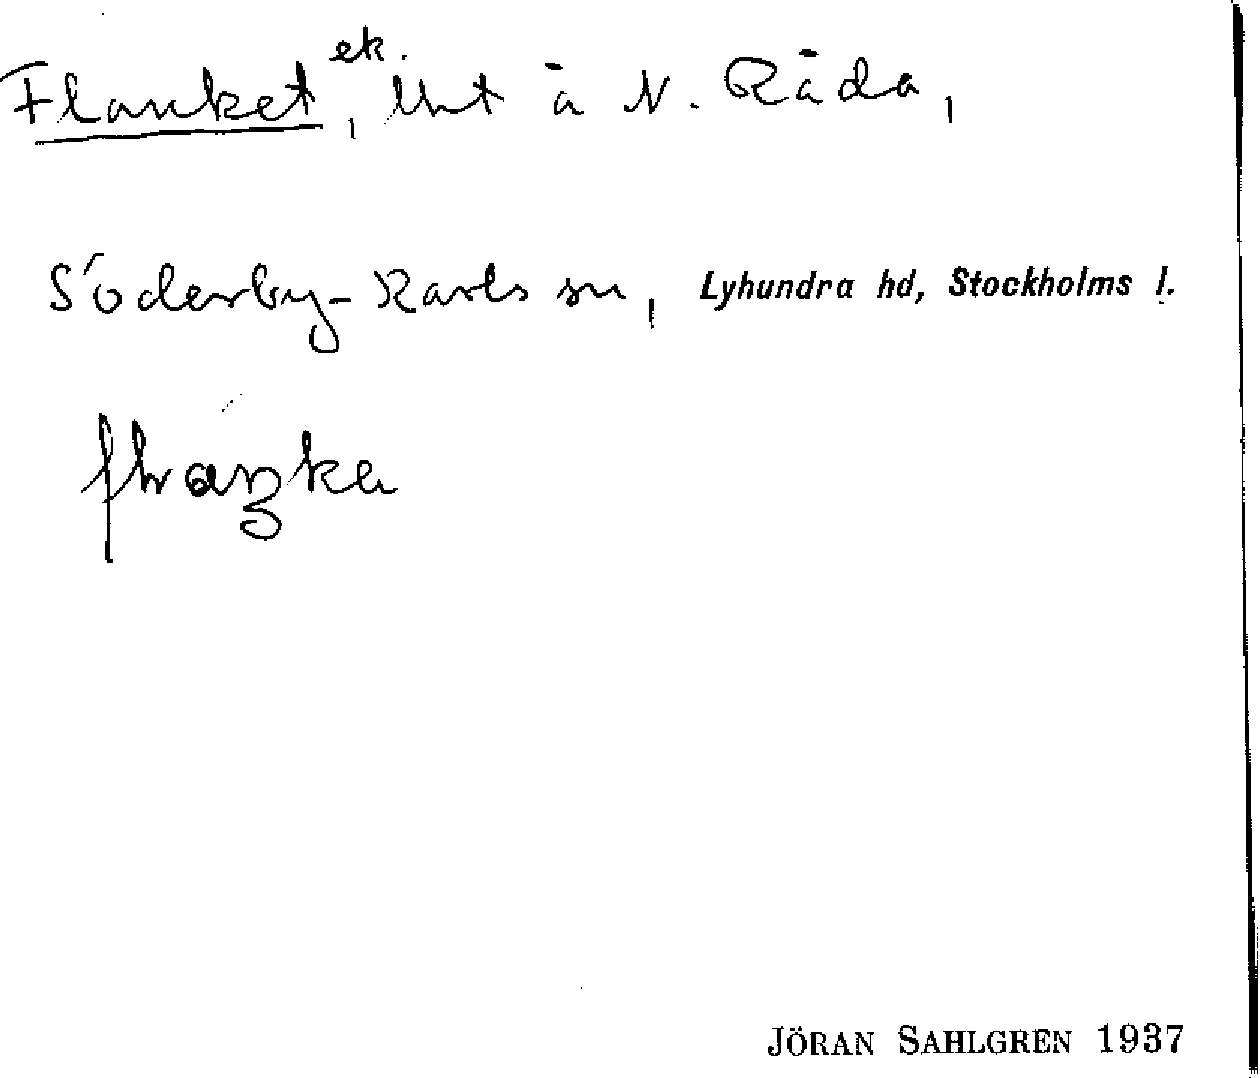 Flanket, ek. lht å N. Råda,
Söderby-Karls sn, Lyhundra hd, Stockholms l.
JÖRAN SAHLGREN 1937